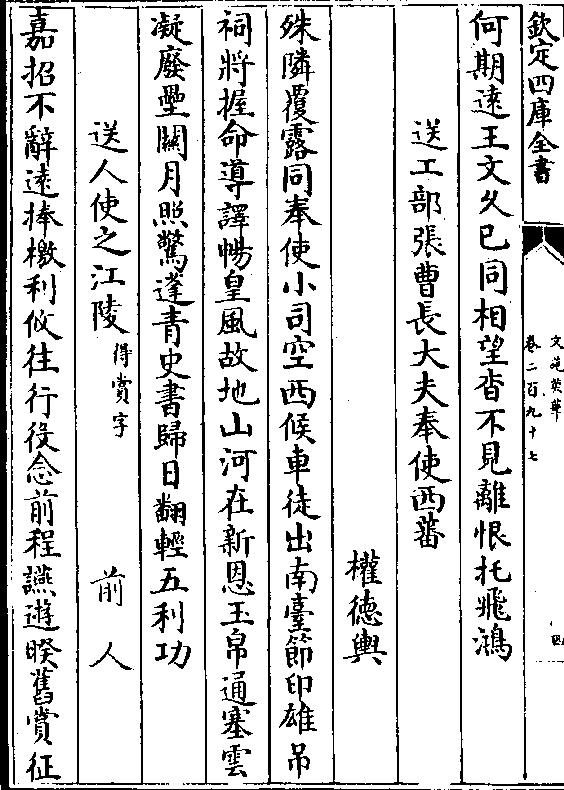 欽定四庫全書
文苑英華
卷二百九十七
四
何期遠王文久已同相望杳不見離恨托飛鴻
送工部張曹長大夫奉使西蕃
權德輿
殊隣覆露同奉使小司空西候車徒出南臺節印雄吊
祠將握命導譯暢皇風故地山河在新恩玉帛通塞雲
凝廢壘關月照驚蓬青史書歸日翻輕五利功
送人使之江陵得賞字
前人
嘉招不辭遠捧檄利攸往行役念前程讌遊暌舊賞征